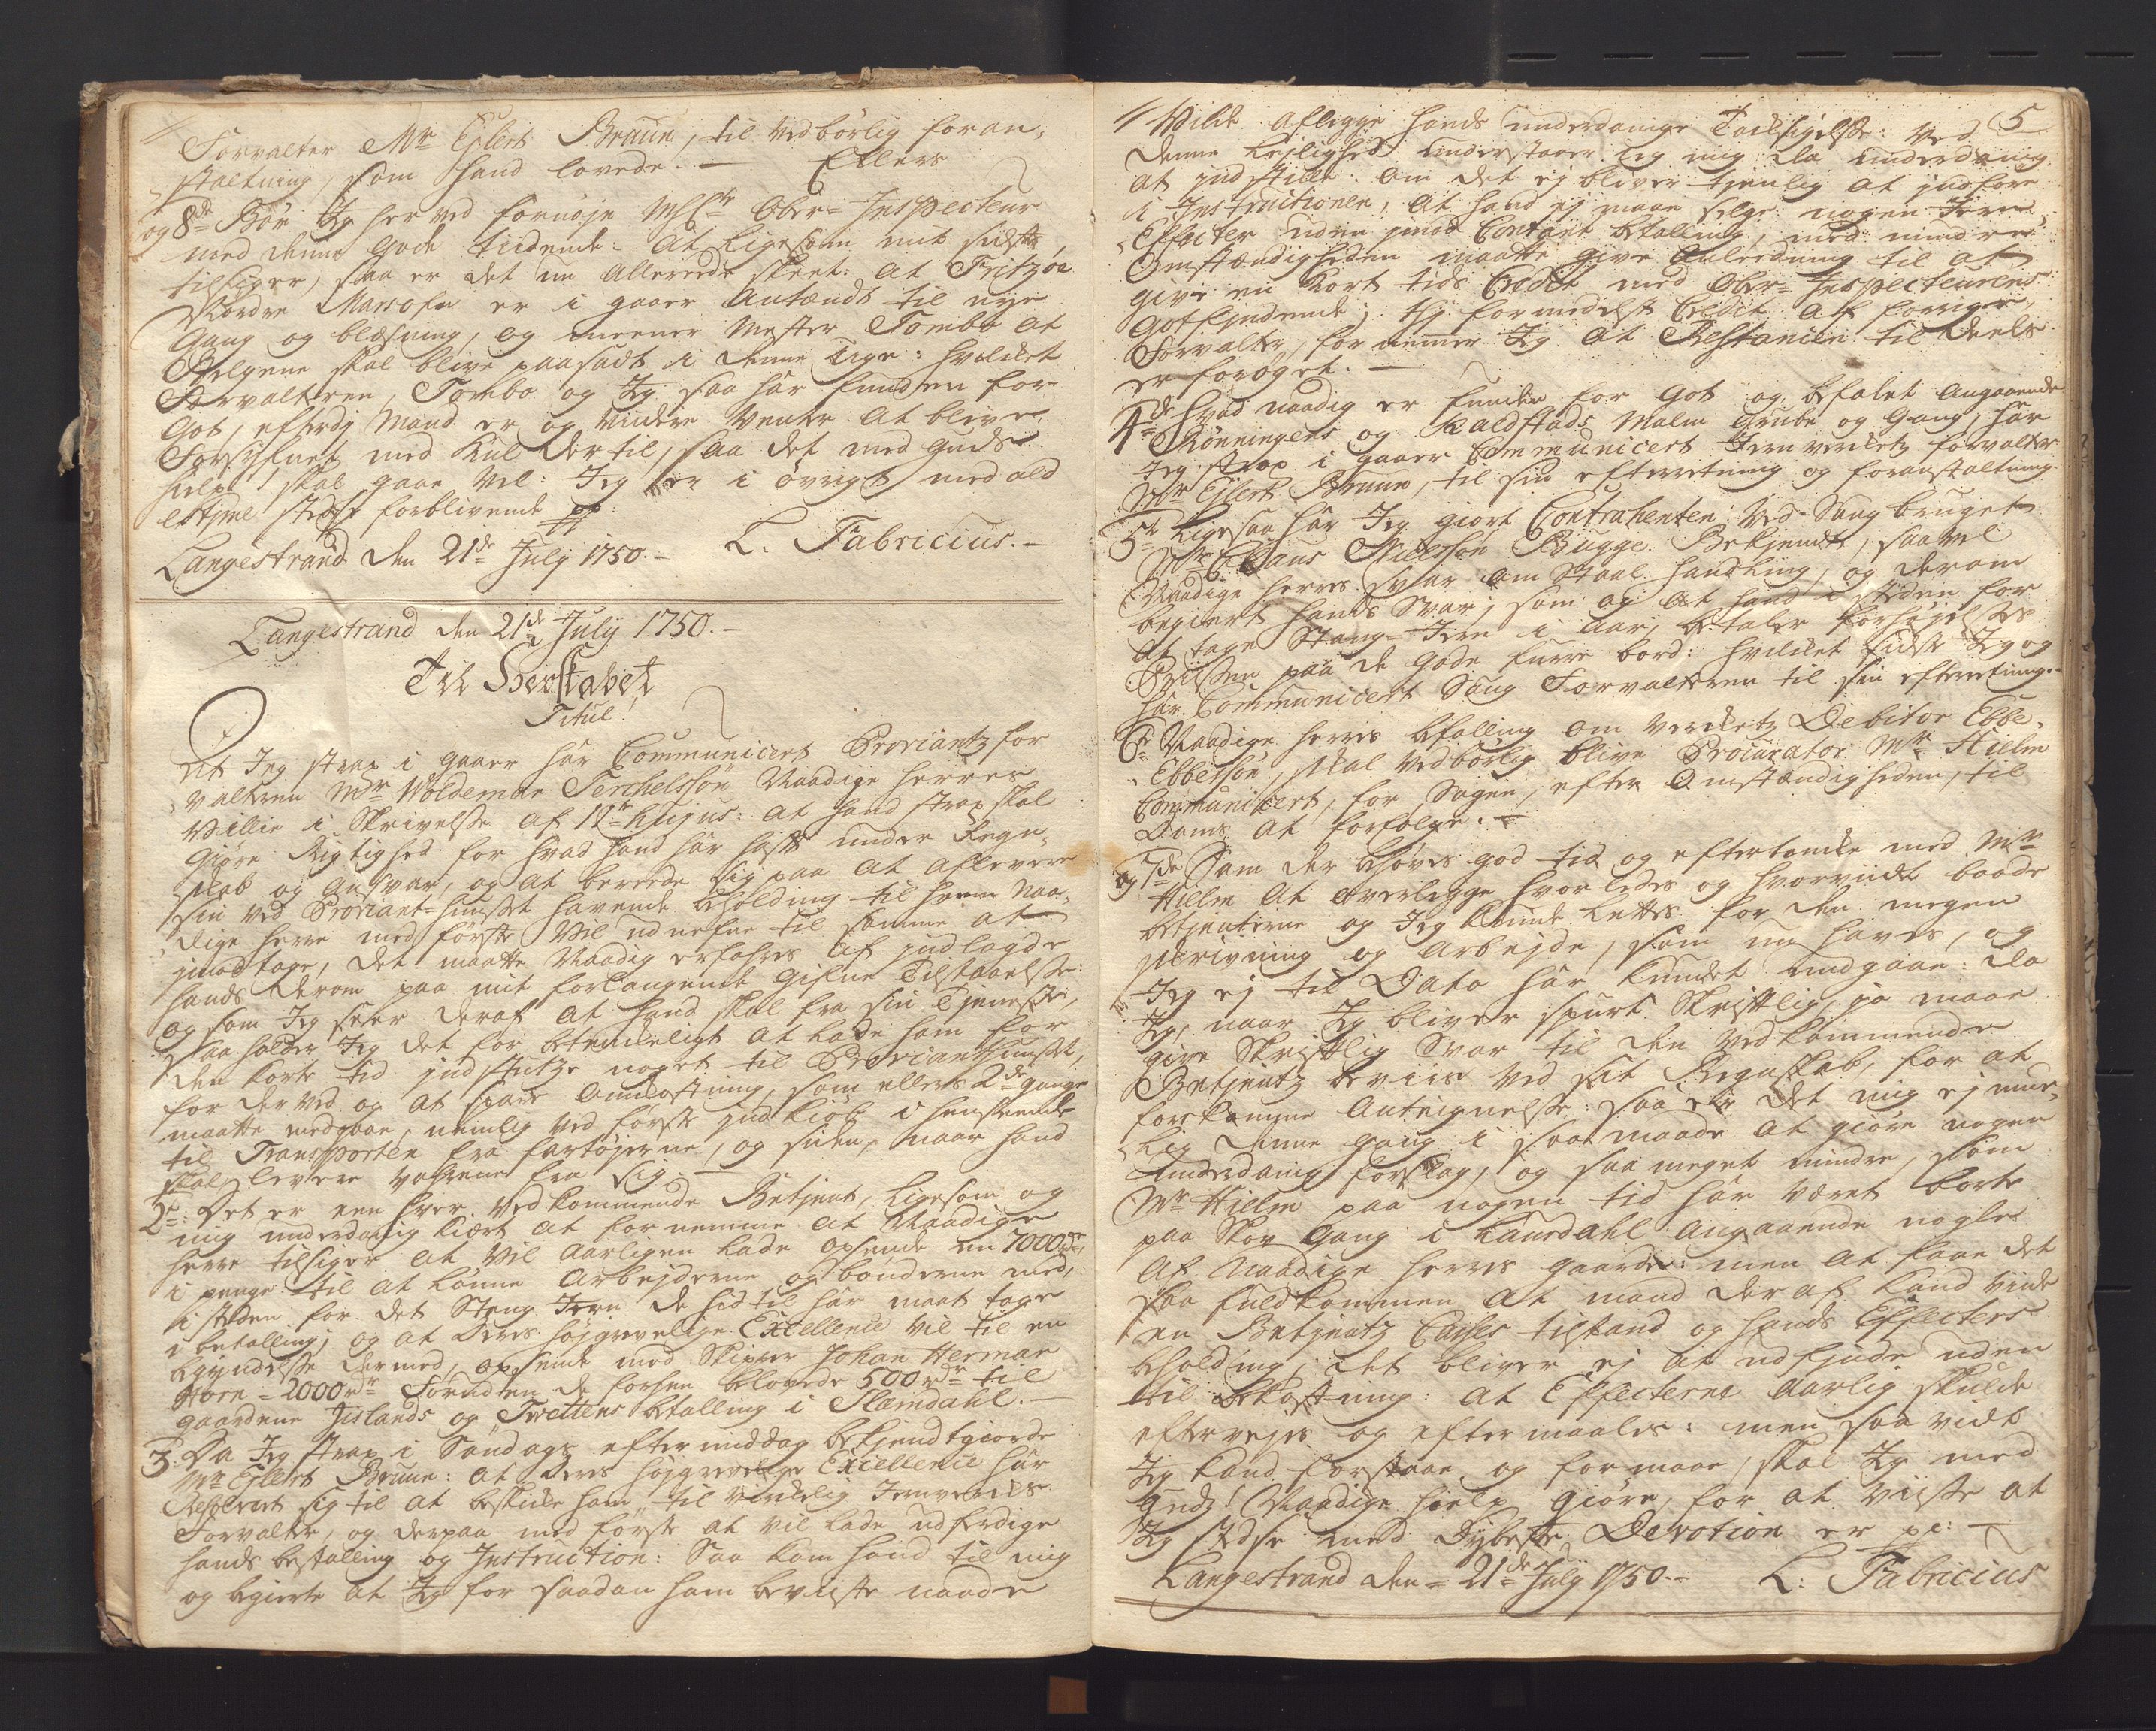 Forvalter Mr Ejlert Bruun, til vedbörlig foran,
staltning, som hand lovede. — Ellers
og 8de Bör Jeg herved fornöje Msr Ober-Inspecteur
med denne gode tiidende: At ligesom mit sidste
tilsiger, saa er det nu allerede skeet: at Fritzöe
Nordre Marsofn er i gaar Antændt til nye
Gang og blæsning, og meener Mester Tombo at
Belgene skal blive paasadt i denne Uge: hvilket
Forvalteren, Tombo og Jeg saa har funden for
Got, efterdj Mand er og viidere venter at blive
Forsyfnet med Kul dertil, saa det med Guds
hielp skal gaae vel: Jeg er i övrigt med ald
estime stedse forblivende pp
Langestrand den 21de July 1750. — L. Fabricius. —
Langestrand den 21de July 1750. —
Til Herskabet
Titul!
At Jeg strax i gaar har Communicert Proviantzfor
valteren Mr Woldemar Terchelssön Naadige Herres
Villie i Skrivelse af 11te hujus: at hand strax skal
Giöre Rigtighed for hvad hand har haft under Regn,
skab og Ansvar, og at bereede sig paa at aflevere
sin ved Proviant-huuset havende beholding til hvem Naa,
dige herre med förste vil udnefne til samme at
jmodtage, det maatte Naadig erfahres af jndlagde
hands derom paa mit forlangende Gifne Tilstaaelse:
og som Jeg seer deraf at hand skal fra sin Tjeneste,
saa holder Jeg det for betenkeligt at lade ham for
den korte tid jndskibe noget til Provianthuuset,
for derved og at spare Omkostning, som ellers 2de gange
maatte medgaae, nemlig ved förste jndkiöb i henseende
til Transporten fra fartöjerne, og siden, naar hand
skal levere vahrene fra sig. —
2de: Det er een hver vedkommende Betjent, ligesom og
mig underdanig kiert at fornemme at Naadige
herre tilsiger at vil Aarligen lade opsende en 7000 rdr
i penge til at lönne Arbejderne og bönderne med,
i steden for det Stang Jern de hidtil har maat tage
i betalling; og at Deres höjgrevelige Excellence vil til en
begyndelse dermed, opsende med Skipper Johan Herman
Horn = 2000 rdr Foruden de forhen belovede 500 rdr til
gaardene Jislands og Tvettens betalling i Slemdahl. —
3. Da Jeg strax i Söndags eftermiddag bekjendtgiorde
Mr Ejlert Bruun: at Deres höjgrevelige Excellence har
Resolvert sig til at beskikke ham til virkelig Jernverks
Forvalter, og derpaa med förste at vil lade udferdige
hands bestalling og Instruction: Saa kom hand til mig
og begierte at Jeg for saadan ham beviiste naade
5
Vilde aflegge hands underdanige Taksigelse: Ved
denne Lejlighed understaaer Jeg mig da underdanig
at jndstille om det ej bliver tjenlig at jndföre
i Instructionen, at hand ej maae selge nogen Jern
Effecter uden jmod Contant betalling, med mindre
Omstændigheden maatte give Anledning til at
give en kort tids Credit med Ober-Inspecteurens
Gotfindende; thj formedelst Credit af forrige
Forvalter, fornemmer Jeg at Restancen til deels
er foröget. —
4de Hvad naadig er funden for Got og befalet angaaende
Rönningens og Kaldstads Malm Grube og Gang, har
Jeg strax i gaar Communicert Jernverketz forvalter
Mr Ejlert Bruun, til sin efterretning og foranstaltning.
5te Ligesaa har Jeg giort Contrahenten ved Saug bruget
Mr Claus Nielssön Bugge Bekjendt, saavel
Naadige herres svar om Staal handling, og derom
begiert hands Svar; som og at hand i steden for
at tage Stang-Jern i Aar, betaler forhöjelses
Priisen paa de gode furre bord: hvilket sidste Jeg og
har Communicert Saug Forvalteren til sin efterretning. —
6te Naadige herres befalling om verketz Debitor Ebbe
Ebbesön, skal vedbörlig blive Procurator Mr Hielm
Communicert, for Sagen, efter Omstændigheden, til
Doms at forfölge. —
og 7de Som der behöves god tid og eftertanke med Mr
Hielm at overlegge hvorledes og hvorviidt baade
betjenterne og Jeg kunde lettes for den megen
skrivning og Arbejde, som nu haves, og
Jeg ej til Dato har kundet undgaae: da
Jeg, naar Jeg bliver spurt Skriftlig, jo maae
give Skriftlig Svar til den vedkommende
Betjentz beviis ved sit Regnskab, for at
forekomme Antegnelse: saa er det mig ej mue,
lig denne gang i saa maade at giöre nogen
Underdanig forslag, og saa meget mindre, som
Mr Hielm paa nogen tid har været borte
paa Skov Gang i Laurdahl angaaende nogle
af Naadige herres gaarde: men at faae det
saa fuldkommen at mand deraf kand viide
en Betjentz Casses tilstand og hands Effecters
beholding, det bliver ej at udfinde uden
til bekostning: at Effecterne Aarlig skulde
eftervejes og eftermaales: men saa vidt
Jeg kand forstaae og formaae, skal Jeg med
Gudz! Naadige hielp giöre, for at viise at
Jeg stedse med dybeste Devotion er pp: —
Langestrand den = 21de July 1750. — L: Fabricius